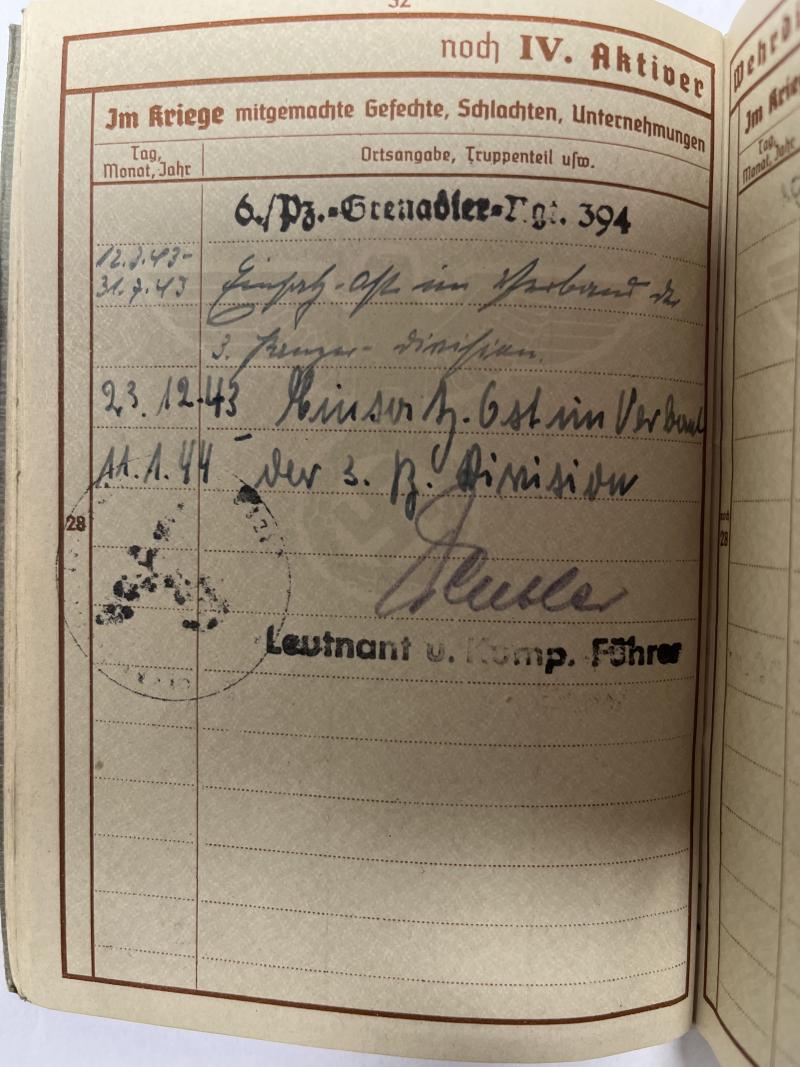 32
noch IV. Aktiver
Im Kriege mitgemachte Gefechte, Schlachten, Unternehmungen
Tag, Monat, Jahr
Ortsangabe, Truppenteil usw.
6./Pz.-Grenadier-Rgt. 394
12.7.43-
31.7.43 Einsatz-Ost im Verband der
3. Panzer-Division.
23.12.43 Einsatz-Ost im Verband
- 11.1.44 der 3. Pz. Division
28
Leutnant u. Komp. Führer
Wehrdi
Im Krie
Tag,
Monat, Jahr
noch
28